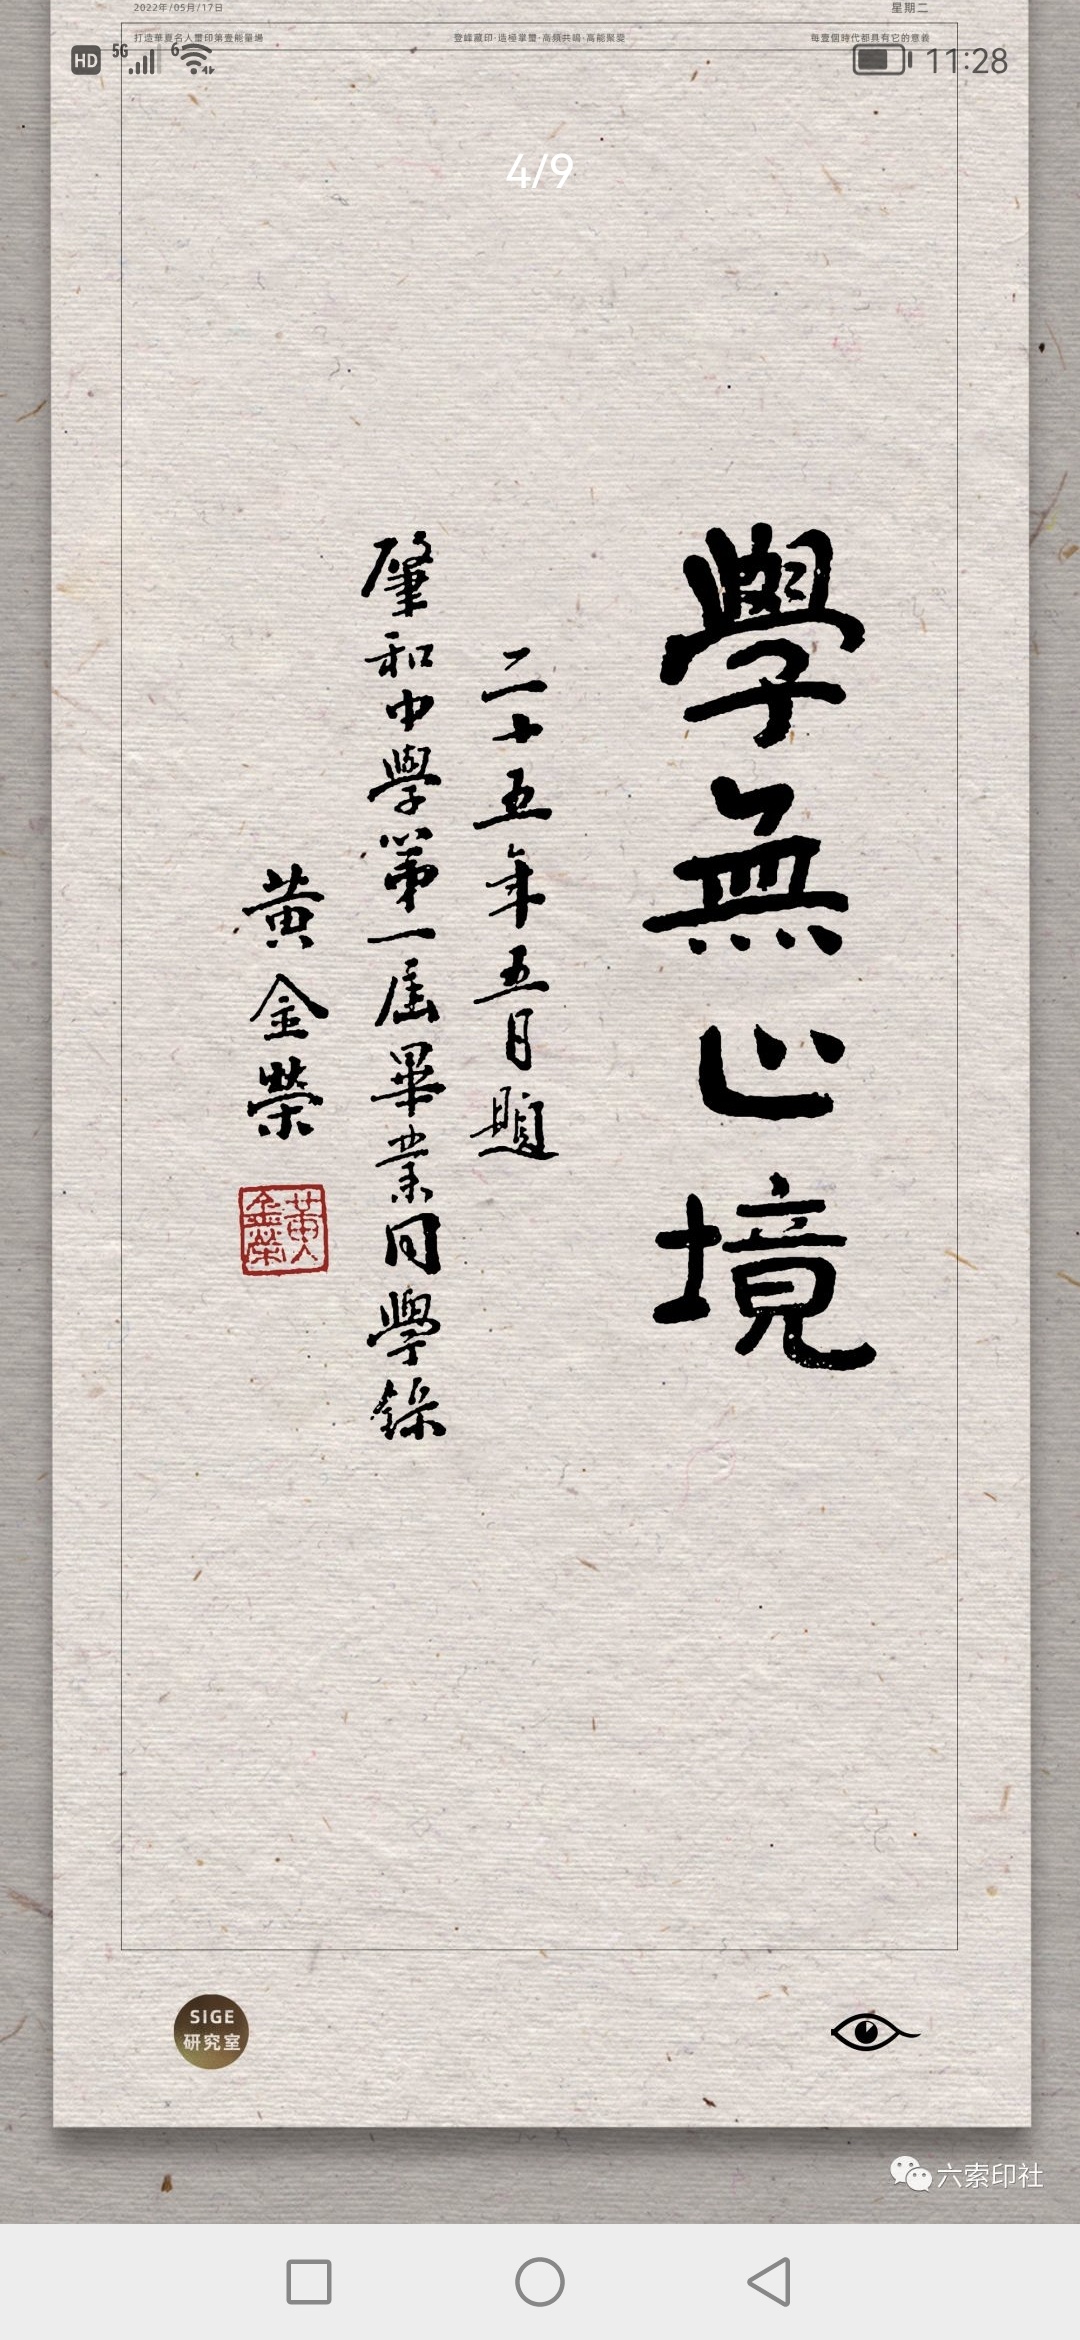 2022年/05月/17日
星期二
打造華夏名人璽印第壹能量場
登峰藏印·造極掌璽·高頻共鳴·高能聚變
每壹個時代都具有它的意義
HD 5G 6 11:28
4/9
學無止境
二十五年五月題
肇和中學第一屆畢業同學錄
黃金榮
黃金榮
SIGE
研究室
六索印社